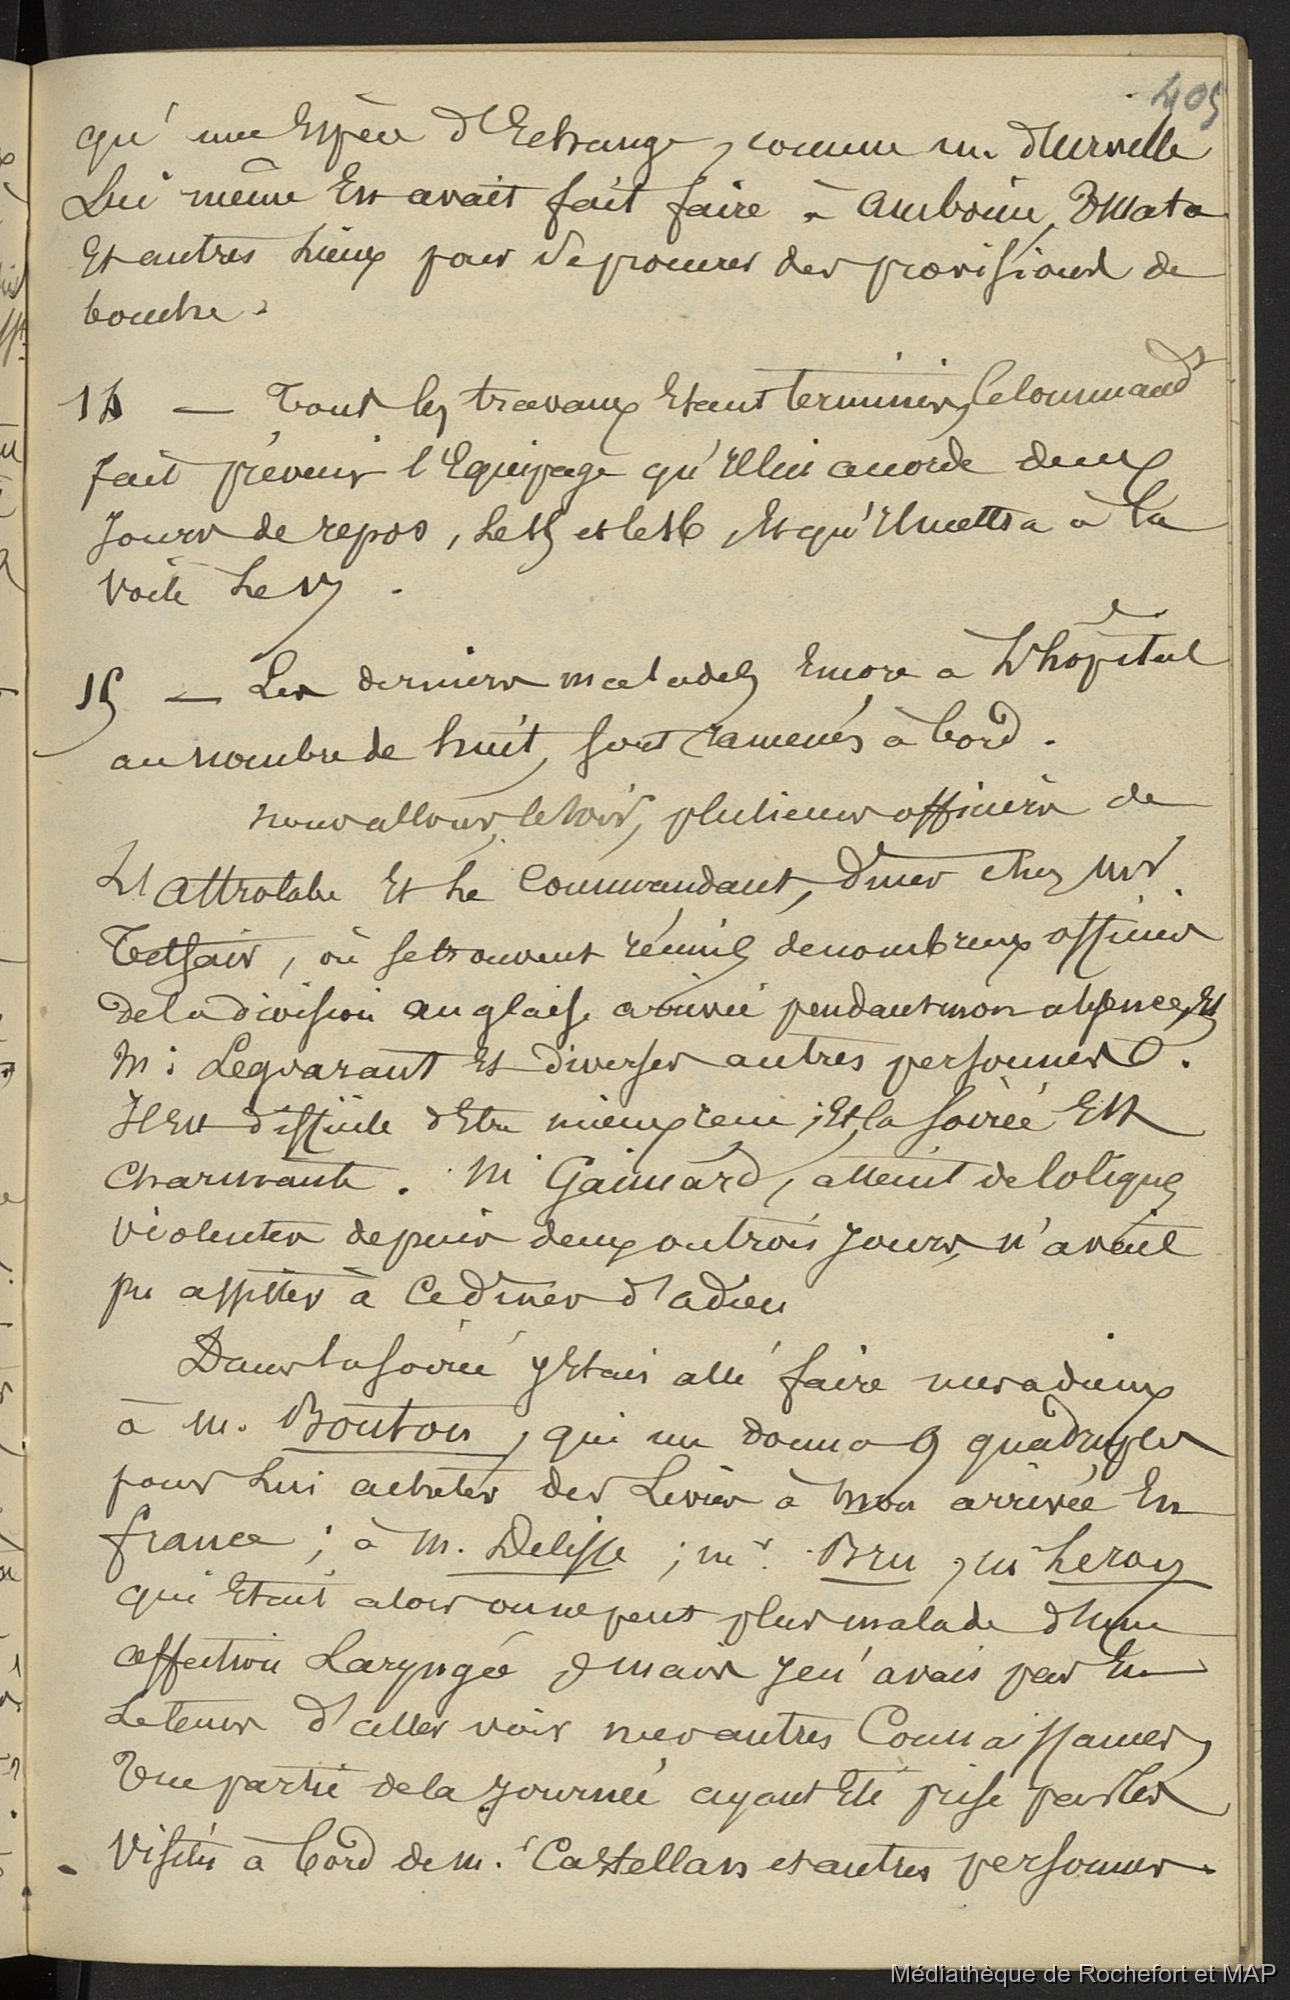 405
qu'une Espèce d'Echange, comme m. d'Urville
Lui même En avait fait faire à Amboine, Umata
Et autres Lieux pour se procurer des provisions de
bouche.
14 — Tous les travaux Etant terminés, le Commandt
fait prévenir l'Equipage qu'Il lui accorde deux
Jours de repos, Le 15 et le 16, Et qu'Il mettra à la
voile Le 17.
15 — Les derniers malades Encore à L'hôpital
au nombre de huit, sont ramenés à bord.
nous allons, le soir, plusieurs officiers de
L'Astrolabe Et Le Commandant, dîner chez Mr.
Telfair, où se trouvent réunis de nombreux officiers
de la division anglaise arrivée pendant mon absence, Et
M. Legoarant Et diverses autres personnes.
Il Est difficile d'Etre mieux reçu ; Et la soirée Est
charmante. M Gaimard, atteint de Coliques
violentes depuis deux ou trois Jours, n'avait
pu assister à ce dîner d'adieu
Dans la soirée j'Etais allé faire mes adieux
à M. Bouton, qui me donna 9 quadruples
pour Lui acheter des Livres à mon arrivée En
france ; à M. Delisse ; mr. Bru, m Leroy
qui Etait alors on ne peut plus malade d'une
affection Laryngée, mais Je n'avais pas Eu
Le temps d'aller voir mes autres Connaissances,
Une partie de la Journée ayant Eté prise par les
visites à bord de m. Castellan et autres personnes.
Médiathèque de Rochefort et MAP